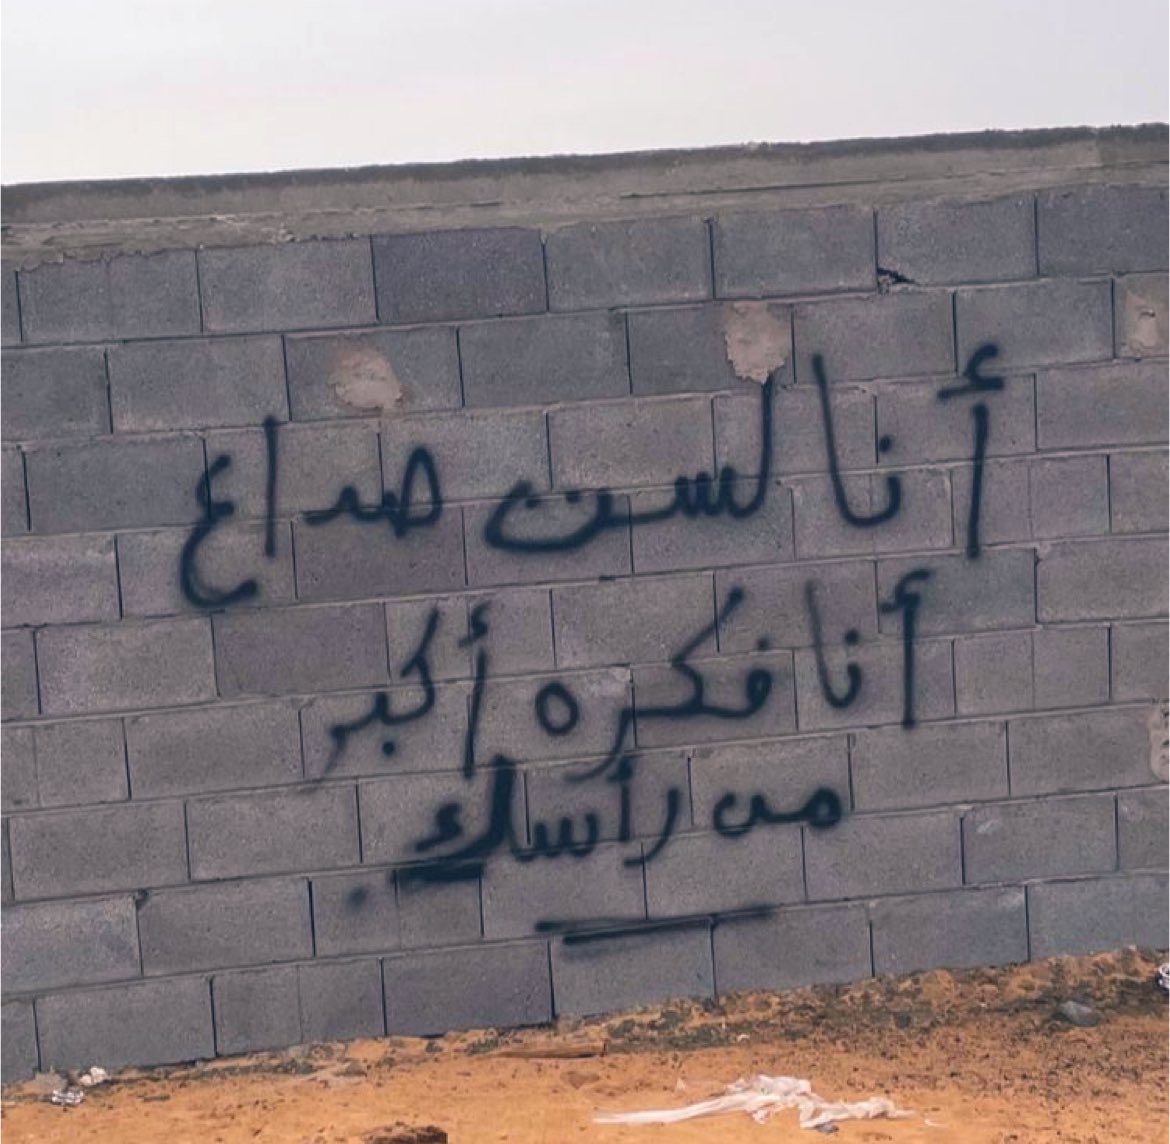 أنا لست صداع
أنا فكره أكبر
من رأسك